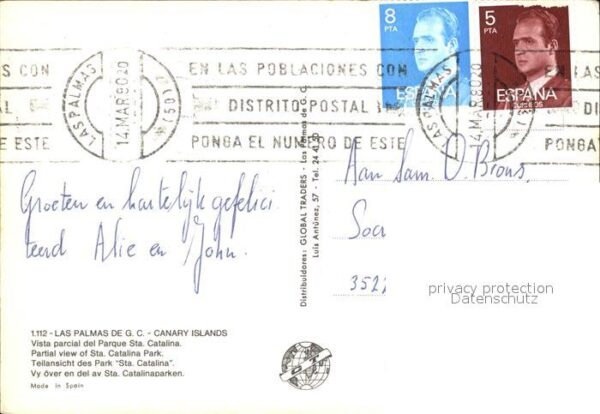 8
PTA
ESPAÑA
5
PTA
ESPAÑA
LAS PALMAS
14.MAR.80.20
EN LAS POBLACIONES CON
DISTRITO POSTAL
PONGA EL NUMERO DE ESTE
CON
DE ESTE
LAS PALMAS
14.MAR.80.20
EN
DI
PONGA
Groeten en hartelijk gefelici
teerd Alie en John.
Distribuidores: GLOBAL TRADERS - Las Palmas de G. C.
Luis Antúnez, 57 - Tel. 24 41 50
Aan Fam. O. Brons,
352
privacy protection
Datenschutz
1.112 - LAS PALMAS DE G. C. - CANARY ISLANDS
Vista parcial del Parque Sta. Catalina.
Partial view of Sta. Catalina Park.
Teilansicht des Park "Sta. Catalina".
Vy över en del av Sta. Catalinaparken.
Made in Spain